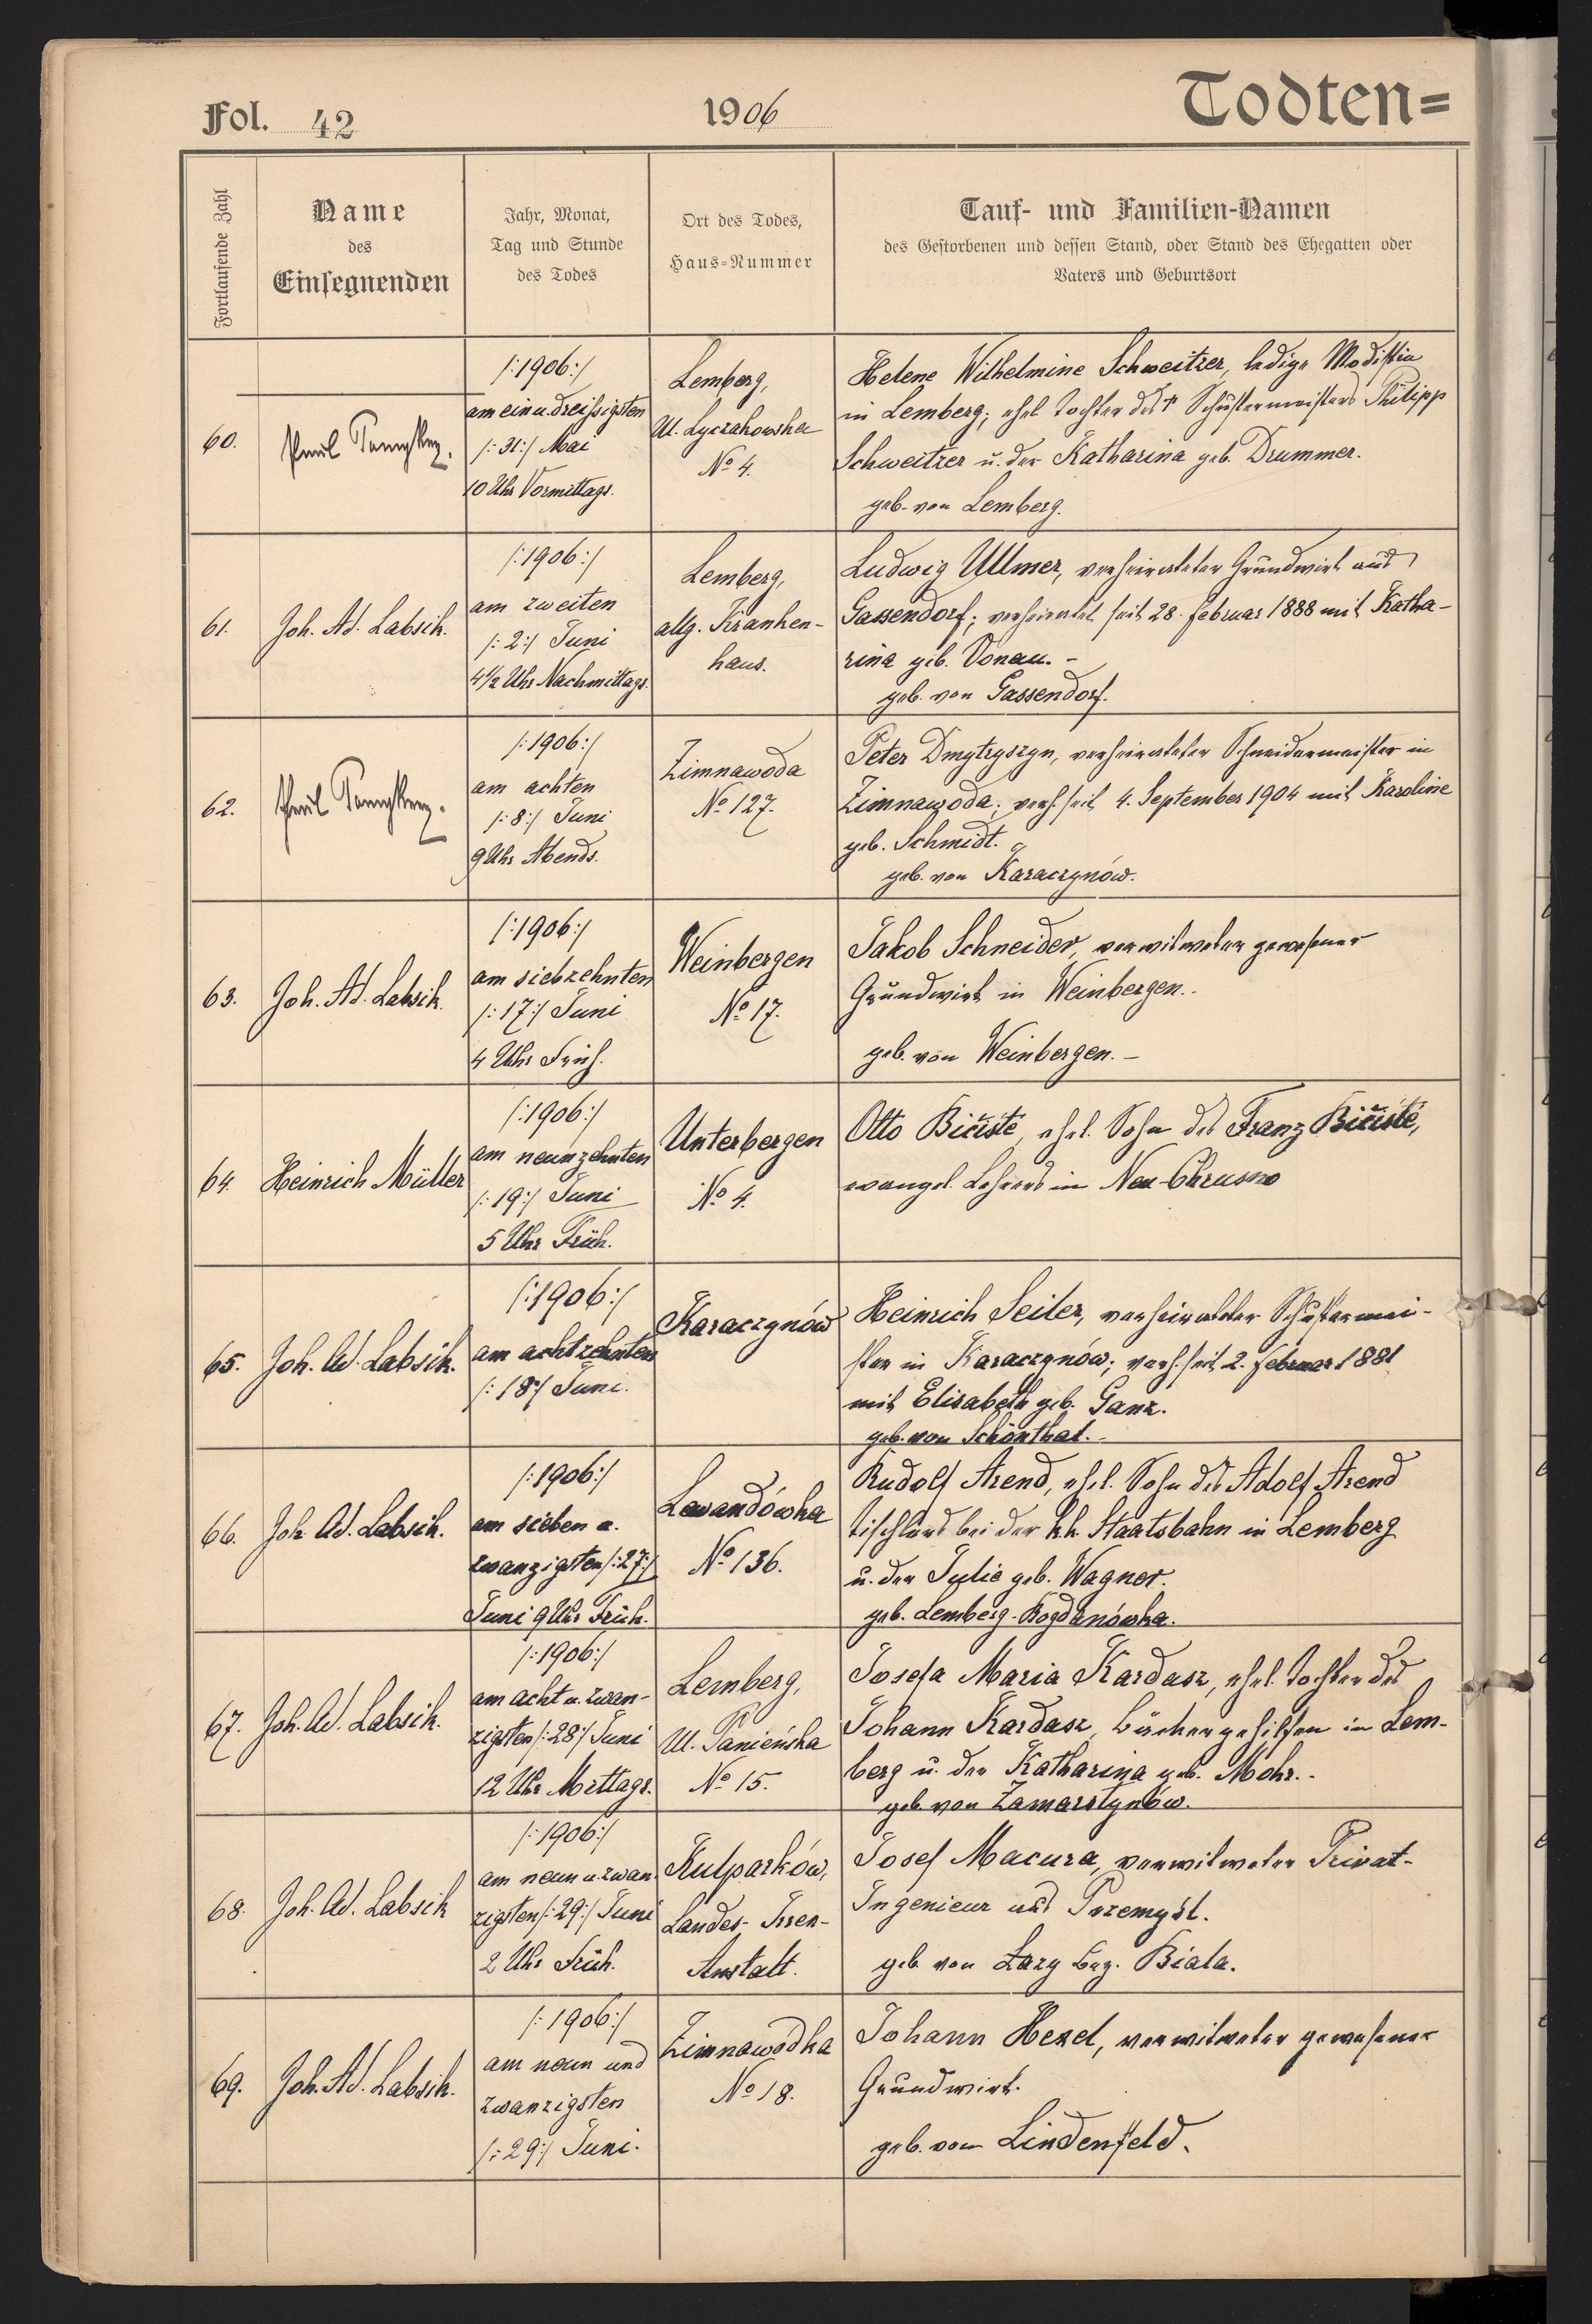 Fol. 42
1906
Todten=
Fortlaufende Zahl
Name
des
Einsegnenden
Jahr, Monat,
Tag und Stunde
des Todes
Ort des Todes,
Haus-Nummer
Tauf- und Familien-Namen
des Gestorbenen und dessen Stand, oder Stand des Ehegatten oder
Vaters und Geburtsort
60.
/:1906:/
am ein u. dreißigsten
/:31:/ Mai
10 Uhr Vormittags.
Lemberg,
Ul. Lyczakowska
No 4.
Helene Wilhelmine Schweitzer, ledige Modistin
in Lemberg; ehel. Tochter des † Schustermeisters Philipp
Schweitzer u. der Katharina geb. Drummer.
geb. von Lemberg.
61.
Joh. Ad. Labsik.
/:1906:/
am zweiten
/:2:/ Juni
4½ Uhr Nachmittags.
Lemberg,
allg. Kranken-
haus.
Ludwig Ullmer, verheirateter Grundwirt aus
Gassendorf; verheiratet seit 28. Februar 1888 mit Katha-
rina geb. Donau. -
geb. von Gassendorf.
62.
/:1906:/
am achten
/:8:/ Juni
9 Uhr Abends.
Zimnawoda
No 127.
Peter Dmytryszyn, verheirateter Schneidermeister in
Zimnawoda; verh. seit 4. September 1904 mit Karoline
geb. Schmidt.
geb. von Karaczynów.
63.
Joh. Ad. Labsik.
/:1906:/
am siebzehnten
/:17:/ Juni
4 Uhr Früh.
Weinbergen
No 17.
Jakob Schneider, verwitweter gewesener
Grundwirt in Weinbergen.
geb. von Weinbergen. -
64.
Heinrich Müller
/:1906:/
am neunzehnten
/:19:/ Juni
5 Uhr Früh.
Unterbergen
No 4.
Otto Bičiště, ehel. Sohn des Franz Bičiště,
evangel. Lehrers in Neu-Chrusno
65.
Joh. Ad. Labsik.
/:1906:/
am achtzehnten
/:18:/ Juni.
Karaczynów
Heinrich Seiler, verheirateter Schustermei-
ster in Karaczynów; verh. seit 2. Februar 1881
mit Elisabeth geb. Ganz.
geb. von Schönthal. -
66.
Joh. Ad. Labsik.
/:1906:/
am sieben u.
zwanzigsten /:27:/
Juni 9 Uhr Früh.
Lewandówka
No 136.
Rudolf Arend, ehel. Sohn des Adolf Arend
Tischlers bei der k.k. Staatsbahn in Lemberg
u. der Julie geb. Wagner.
geb. Lemberg-Bogdanówka.
67.
Joh. Ad. Labsik.
/:1906:/
am acht u. zwan-
zigsten /:28:/ Juni
12 Uhr Mittags.
Lemberg,
Ul. Panieńska
No 15.
Josefa Maria Kardasz, ehel. Tochter des
Johann Kardasz, Bäckergehilfen in Lem-
berg u. der Katharina geb. Mohr. -
geb. von Zamarstynów.
68.
Joh. Ad. Labsik
/:1906:/
am neun u. zwan-
zigsten /:29:/ Juni
2 Uhr Früh.
Kulparków,
Landes-Irren-
Anstalt.
Josef Macura, verwitweter Privat-
Ingenieur aus Przemyśl.
geb. von Lazy Bez. Biala.
69.
Joh. Ad. Labsik.
/:1906:/
am neun und
zwanzigsten
/:29:/ Juni.
Zimnawodka
No 18.
Johann Hezel, verwitweter gewesener
Grundwirt.
geb. von Lindenfeld.